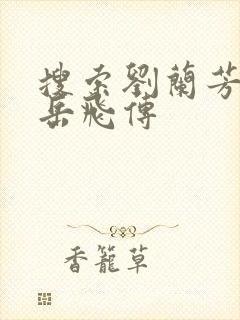 搜索劉蘭芳
岳飛傳
香籠草